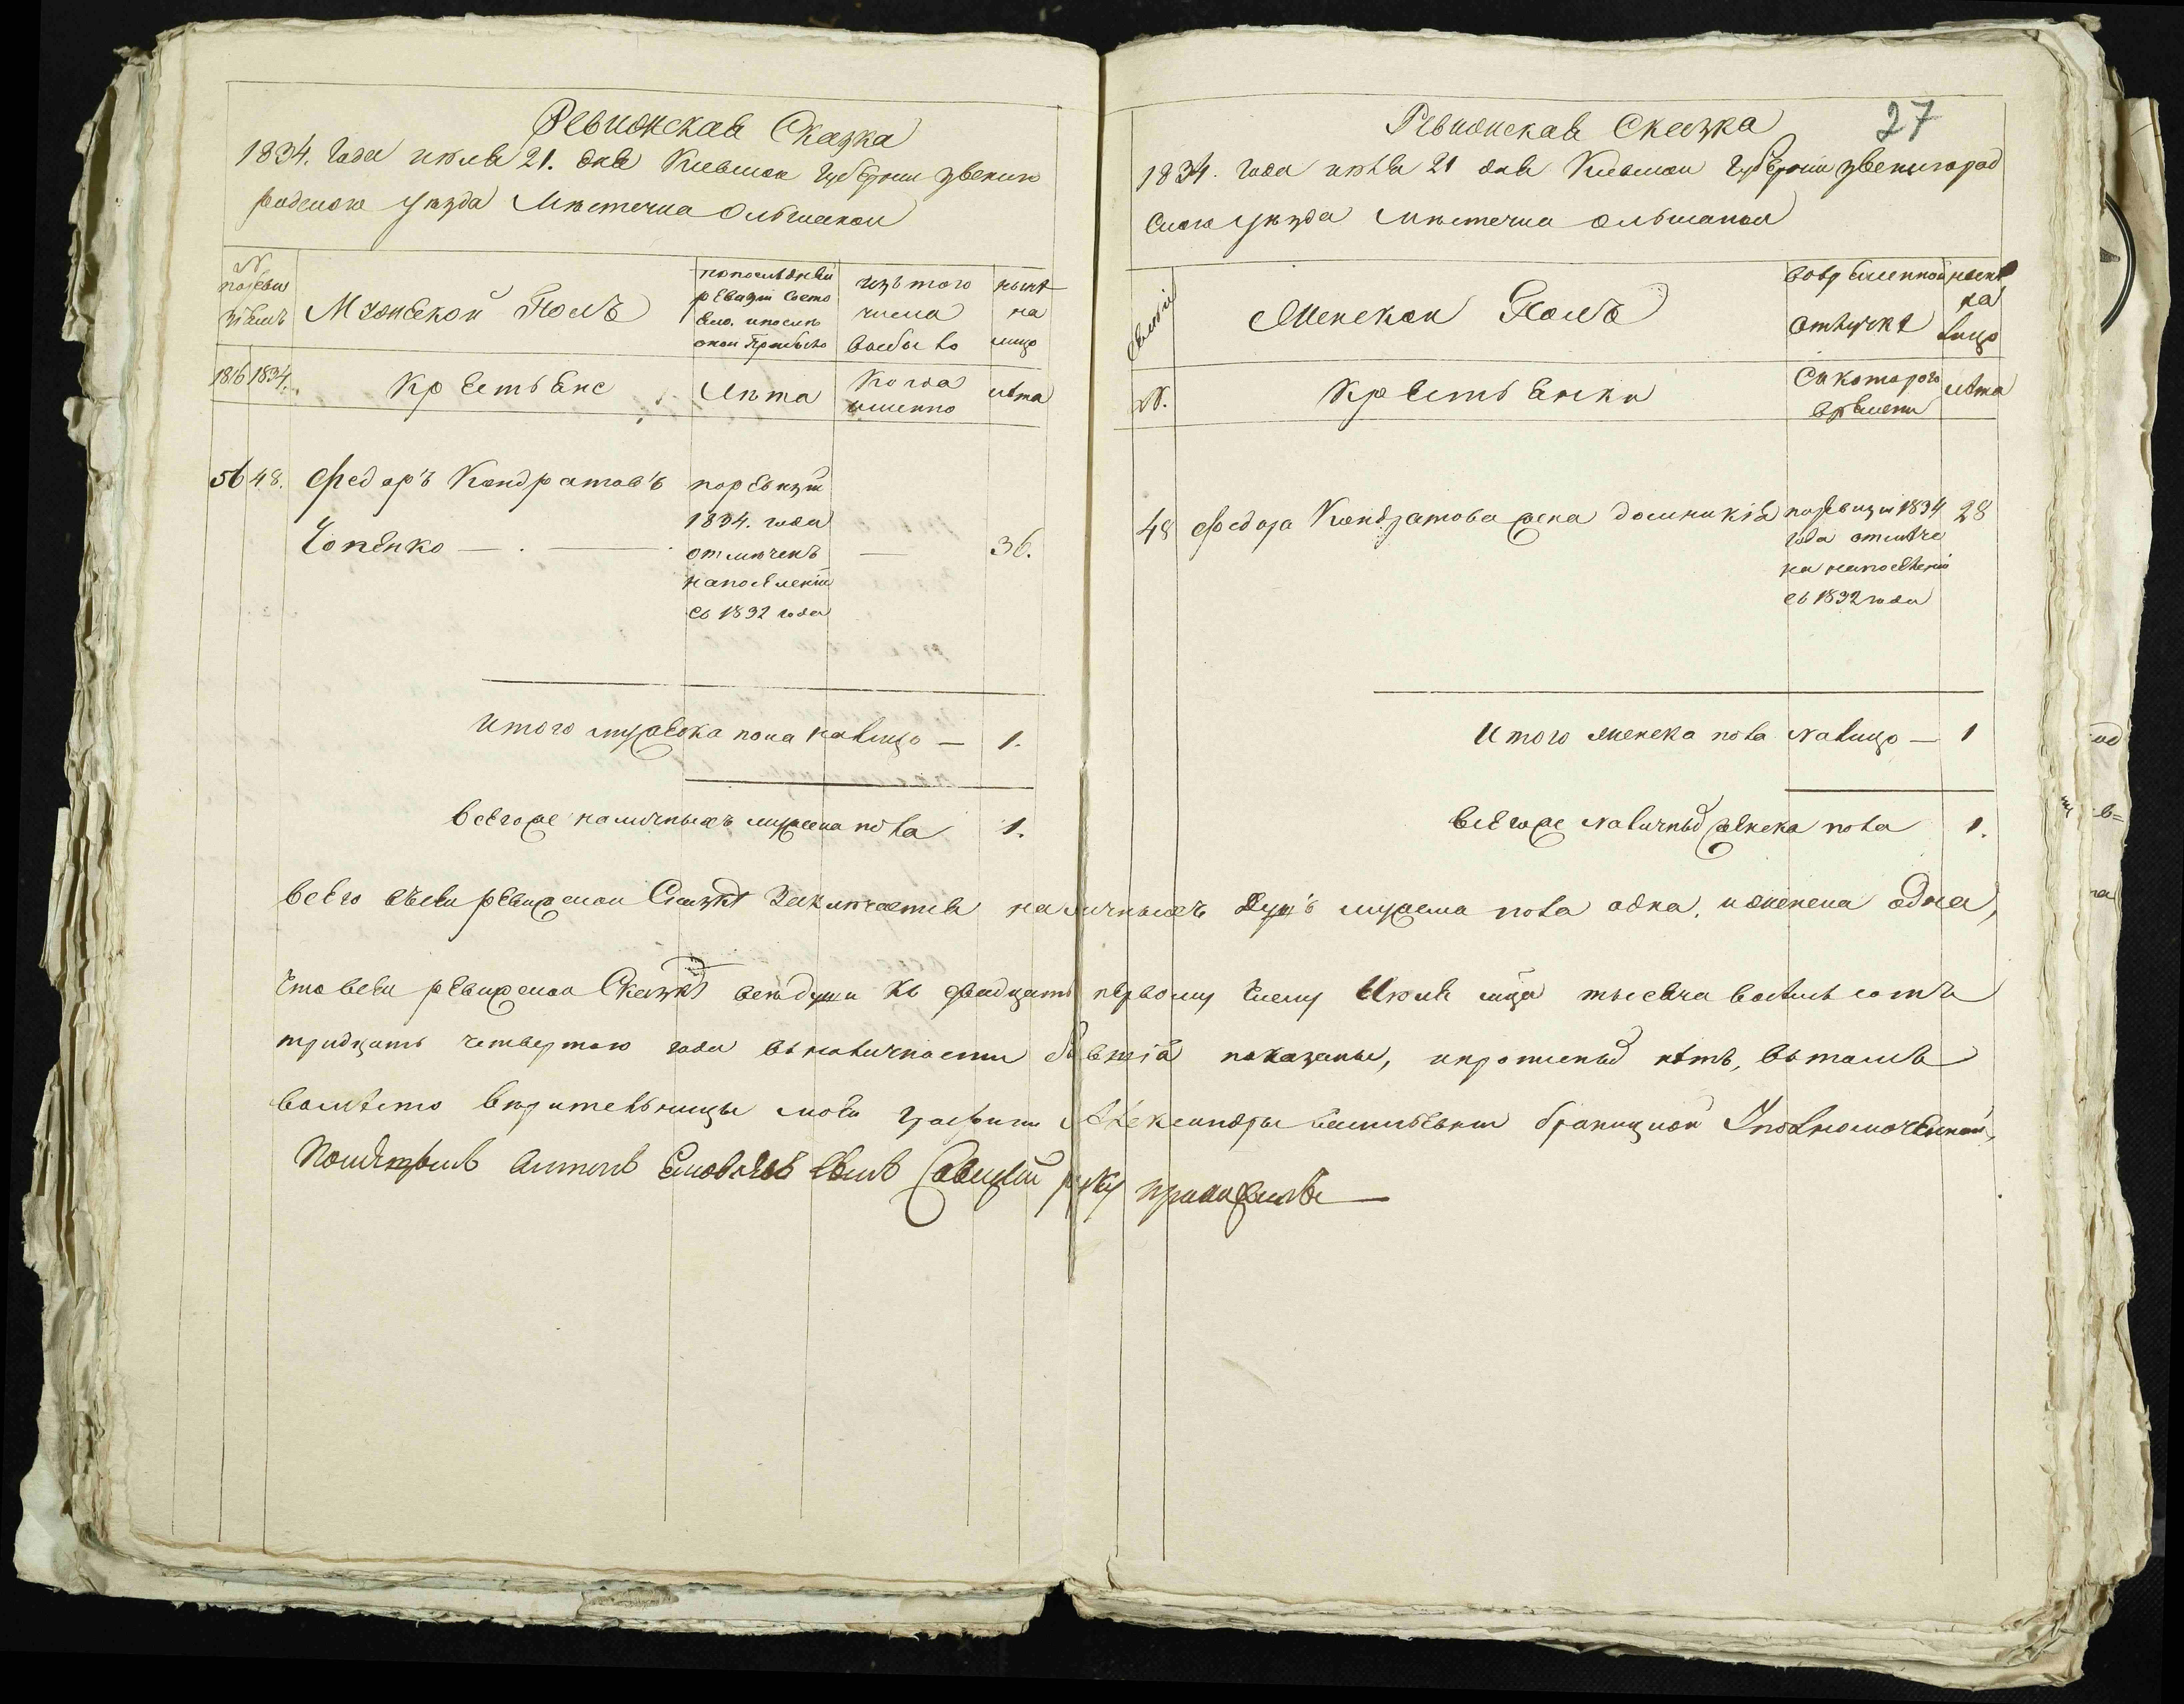 Ревижская Сказка
1834. Года июля 21. дня Киевской Губернии Звениго
родского уезда Местечка Ольшаной
N
по реви
зіямъ
Мужеской Полъ
по последней
ревизіи состо
яло, и после
оной прибыло
изъ того
числа
выбыло
ныне
на
лицо
1816 1834.
Крестьяне
Лета
Когда
именно
лета
56 48. Федоръ Кондратовъ
Чопенко — . —
по ревизіи
1834. года
отмеченъ
на поселеніи
съ 1832 года
—
36.
Итого мужеска пола на лицо — 1.
Всего же наличныхъ мужеска пола 1.
27
Ревижская Сказка
1834. года июля 21 дня Киевской Губернии Звенигород
ского уезда Местечка Ольшаной
Семьи
Женской Полъ
во временной
отлучке
ныне
на
лицо
N.
Крестьянки
Съ которого
времени
лета
48 Федора Кондратова жена Домникія
по ревизіи 1834
года отмече
на на поселеніи
съ 1832 года
28
Итого женска пола на лицо — 1
Всего же наличныхъ женска пола 1.
Всего въ сей ревижской Сказке заключается наличныхъ душъ мужеска пола одна, и женска одна,
что в сей ревижской Сказке все души къ двадцать первому сему июля мца тысяча восемь сотъ
тридцать четвертого года въ наличности показаны, и прописныхъ нетъ, въ томъ
вместо верительницы моей Графини Александры Васильевны Браницкой Уполномоченный,
Помещикъ Антонъ сынъ Савицкий руку приложилъ —